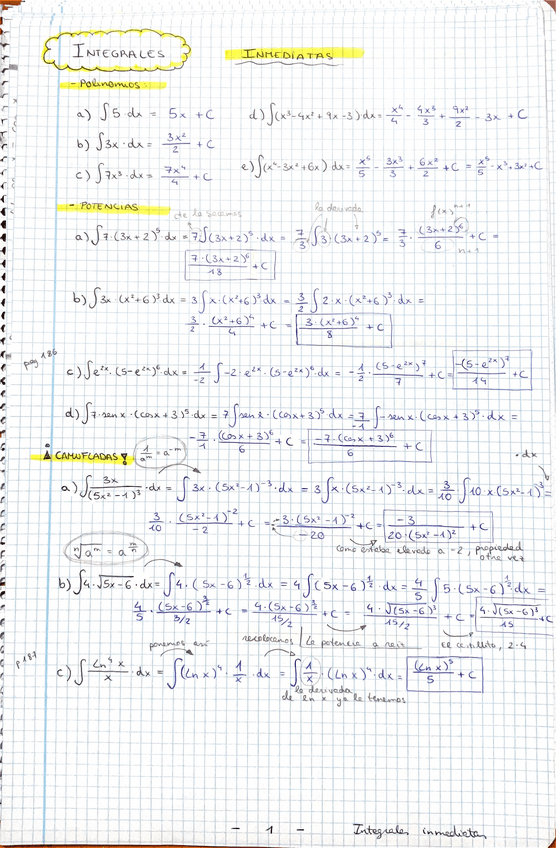 INTEGRALES INMEDIATAS
- Polinomios
a) ∫5·dx = 5x + C
d) ∫(x³-4x²+9x-3)·dx = x⁴/4 - 4x³/3 + 9x²/2 - 3x + C
b) ∫3x·dx = 3x²/2 + C
c) ∫7x³·dx = 7x⁴/4 + C
e) ∫(x⁴-3x²+6x)dx = x⁵/5 - 3x³/3 + 6x²/2 + C = x⁵/5 - x³ + 3x² + C
- POTENCIAS
la derivada f(x)ⁿ⁺¹
a) ∫7·(3x+2)⁵·dx = 7∫(3x+2)⁵·dx = 7/3 ∫3·(3x+2)⁵ = 7/3 · (3x+2)⁶/6 + C =
n+1
7·(3x+2)⁶/18 + C
b) ∫3x·(x²+6)³dx = 3∫x·(x²+6)³dx = 3/2 ∫2x·(x²+6)³·dx =
3/2 · (x²+6)⁴/4 + C = 3·(x²+6)⁴/8 + C
pag 186
c) ∫e²ˣ·(5-e²ˣ)⁶·dx = 1/-2 ∫-2·e²ˣ·(5-e²ˣ)⁶·dx = -1/2 · (5-e²ˣ)⁷/7 + C = -(5-e²ˣ)⁷/14 + C
d) ∫7·senx·(cosx+3)⁵·dx = 7∫senx·(cosx+3)⁵·dx = 7/-1 ∫-senx·(cosx+3)⁵·dx =
-7/1 · (cosx+3)⁶/6 + C = -7·(cosx+3)⁶/6 + C
¡CAMUFLADAS! 1/aᵐ = a⁻ᵐ
·dx
a) ∫3x/(5x²-1)³·dx = ∫3x·(5x²-1)⁻³·dx = 3∫x·(5x²-1)⁻³·dx = 3/10 ∫10x(5x²-1)⁻³ =
3/10 · (5x²-1)⁻²/-2 + C = -3·(5x²-1)⁻²/-20 + C = -3/20·(5x²-1)² + C
ⁿ√aᵐ = a^(m/n)
como estaba elevado a -2, propiedad
otra vez
b) ∫4·√5x-6·dx = ∫4·(5x-6)^(1/2)·dx = 4∫(5x-6)^(1/2)·dx = 4/5 ∫5·(5x-6)^(1/2)·dx =
4/5 · (5x-6)^(3/2)/3/2 + C = 4·(5x-6)^(3/2)/15/2 + C = 4·√(5x-6)³/15/2 + C = 4·√(5x-6)³/15 + C
ponemos así recolocamos La potencia a raíz
p187
c) ∫Ln⁴x/x·dx = ∫(Ln x)⁴·1/x·dx = ∫1/x·(Ln x)⁴·dx = (Ln x)⁵/5 + C
la derivada
de ln x ya la tenemos
- 1 - Integrales inmediatas